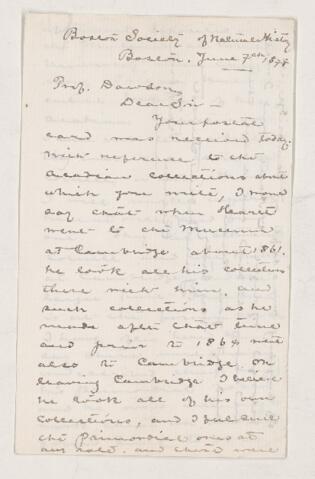 Boston Society of Natural History
Boston, June 7th 1878
Prof. Dawson,
Dear Sir —
Your postal
card was received today.
With reference to the
Acadian collections about
which you write, I would
say that when Hartt
went to the Museum
at Cambridge about 1861.
he took all his collections
there with him, and
such collections as he
made after that time
and prior to 1864 went
also to Cambridge. On
leaving Cambridge I believe
he took all of his own
collections, and I feel sure
the primordial ones at
any rate, and there were